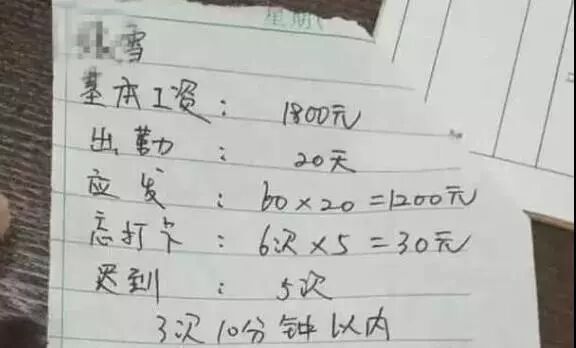 星期
雪
基本工资：1800元
出勤：20天
应发：60×20=1200元
忘打卡：6次×5=30元
迟到：5次
3次10分钟以内